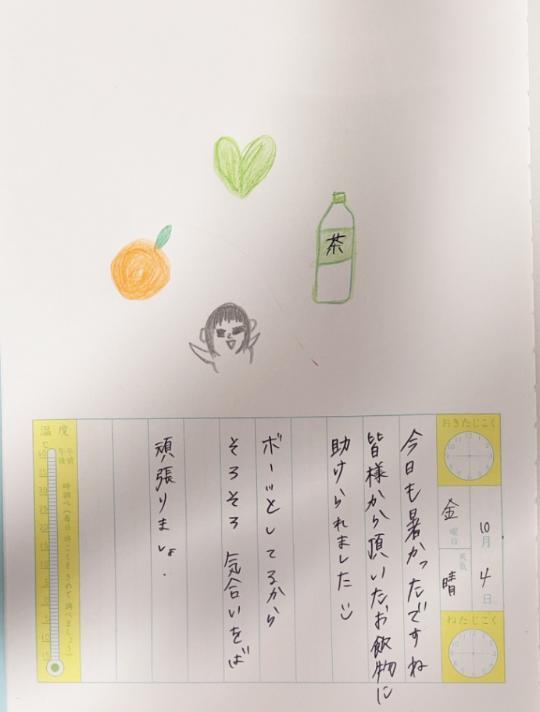 茶
おきたじこく
10月4日
金曜日
天気
晴
ねたじこく
今日も暑かったですね
皆様から頂いたお飲物に
助けられました
ボーッとしてるから
そろそろ 気合いをば
頑張りましょ.
温度
午前
午後